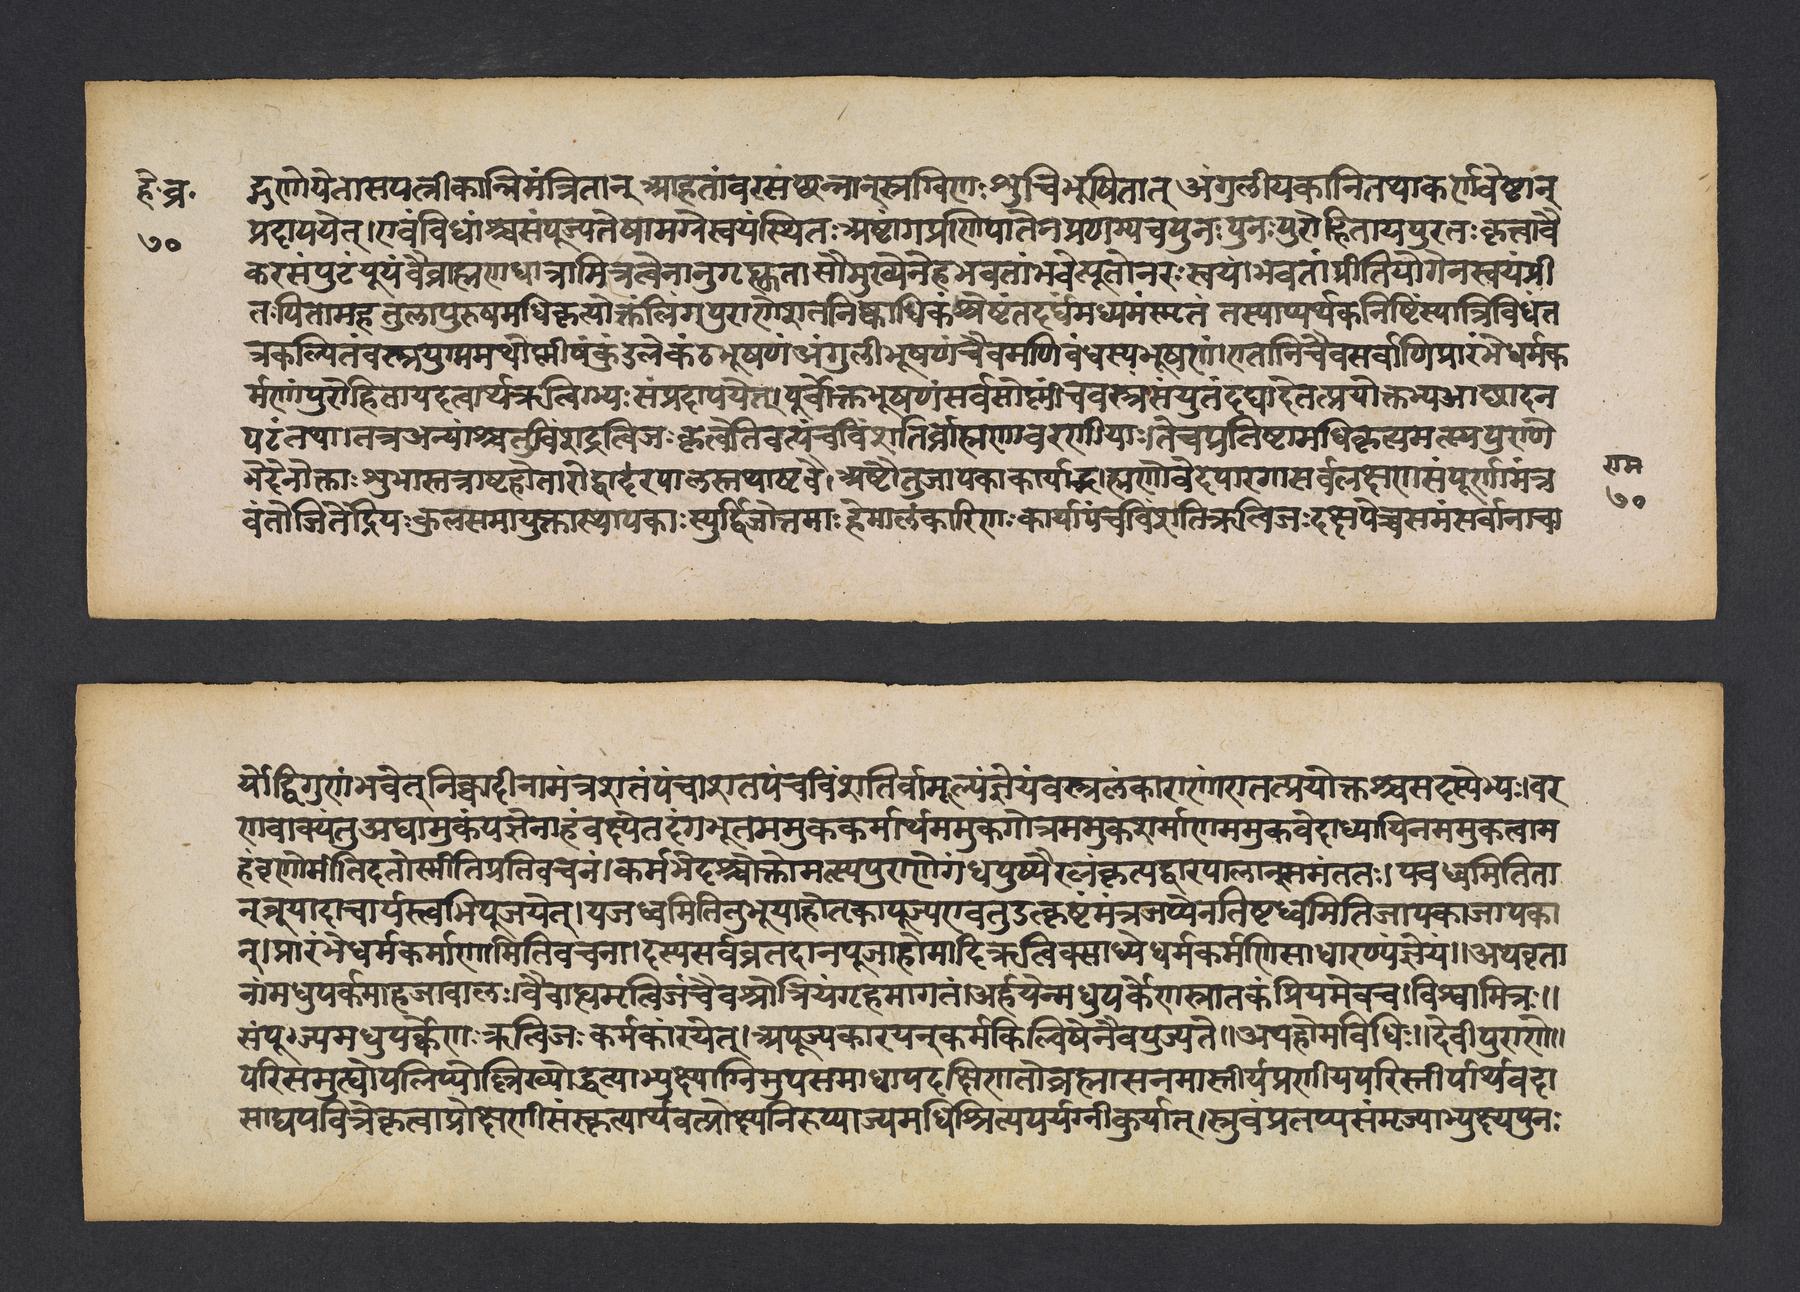 हे.व्र.
७०
द्गुणोयेतासपत्नीकान्निमंत्रितान् आहतांवरसंछन्नान्स्रग्विणः शुचिभूषितान् अंगुलीयकानितथाकर्णवेष्टान्
प्रदापयेत्।एवंविधांश्चसंपूज्यतेषामग्रेस्वयंस्थितः अष्टांगप्रणिपातेनप्रणम्यचपुनःपुनःपुरोहितायपुरतः कृत्वावै
करसंपुटंयूयंवैब्राह्मणाधात्रामित्रत्वेनानुगृह्णता सौमुख्येनेहभवतांभवेत्पूतोनरः स्वयं।भवतांप्रीतियोगेनस्वयंप्री
तःपितामह तुलापुरुषमधिकृत्योक्तंलिंगपुराणेशतनिष्काधिकंश्रेष्टंतदर्धंमध्यमंस्मृतं तस्याप्यर्धंकनिष्टंस्यात्रिविधंत
त्रकल्पितंवस्त्रयुग्ममथोष्णीषंकुंडलेकंठभूषणं अंगुलीभूषणंचैवमणिबंधस्यभूषणं।एतानिचैवसर्वाणिप्रारंभेधर्मक
र्मणांपुरोहितायदत्वार्थऋत्विग्भ्यः संप्रदापयेत्।पूर्वोक्तभूषणंसर्वंसोष्णींचवस्त्रसंयुतंदद्यादेतत्प्रयोक्तभ्यआछादन
पटंतथा।तत्रअन्यांश्चतुर्विंशदृत्विजः कृत्वेतिवत्यंचविंशतिर्ब्राह्मणावरणीयाः।तेचप्रतिष्टामधिकृत्यमत्स्यपुराणे
भेदेनोक्ताःशुभास्तत्राष्टहोतारोद्वारपालास्तथाष्टवै।अष्टौतुजापकाकार्याब्राह्मणावेदपारगासर्वलक्षणसंपूर्णामंत्र
वंतोजितेंद्रियःकुलसमायुक्तास्थापकाःस्युर्द्विजोत्तमाः हेमालंकारिणः कार्यापंचविंशतिऋत्विजःदक्षपेच्चसमंसर्वानाचा
राम
७०
र्योद्विगुणंभवेत् निष्कादीनामंत्रशतंपंचाशतपंचविंशतिर्वामूल्यंज्ञेयंवस्त्रलंकाराणांएतत्प्रयोक्तश्चसदस्येभ्यः।वर
णवाक्यंतुअद्यामुकंयज्ञेनाहंवक्ष्येतदंगभूतममुककर्मार्थममुकगोत्रममुकशर्माणममुकवेदाध्यायिनममुकत्वाम
हंवृणोमीतिदतोस्मीतिप्रतिवचनं।कर्मभेदश्चोक्तोमत्स्यपुराणेगंधपुष्पैरलंकृत्यद्वारपालान्समंततः। पवध्वमितिता
न्ब्रूयादाचार्यस्त्वभिपूजयेत्।यजध्वमितितुब्रूयाहोतृकापूज्यएवतुउत्कृष्टंमंत्रजप्येनतिष्टध्वमितिजापकाजापका
न्।प्रारंभेधर्मकर्माणामितिवचना।दस्यसर्वव्रतदानपूजाहोमादिऋत्विक्साध्येधर्मकर्मणिसाधारण्यंज्ञेयं॥अथवृता
नांमधुपर्कमाहजाबालः।वैवाह्यमृत्विजंचैवश्रोत्रियंगृहमागतं।अर्हयेन्मधुपर्केणस्नातकंप्रियमेवच।विश्वामित्रः॥
संपूज्यमधुपर्केणःऋत्विजः कर्मकारयेत्।अपूज्यकारयन्कर्मकिल्विषेनैवपुज्यते॥अथहोमविधिः॥देवीपुराणे॥
परिसमुत्द्योपलिप्योल्लिख्योद्धृत्याभ्युक्ष्याग्निमुपसमाधापदक्षिणतोब्रह्मासनमास्तीर्यप्रणीयपरिस्तीर्यार्थवदा
साद्यपवित्रेकृत्वाप्रोक्षणीसंस्कृत्यार्थवत्प्रोक्ष्यनिरूप्याज्यमधिश्रित्यपर्यग्नीकुर्यात्।स्रुवंप्रतप्यसंमृज्याभ्युक्ष्यपुनः